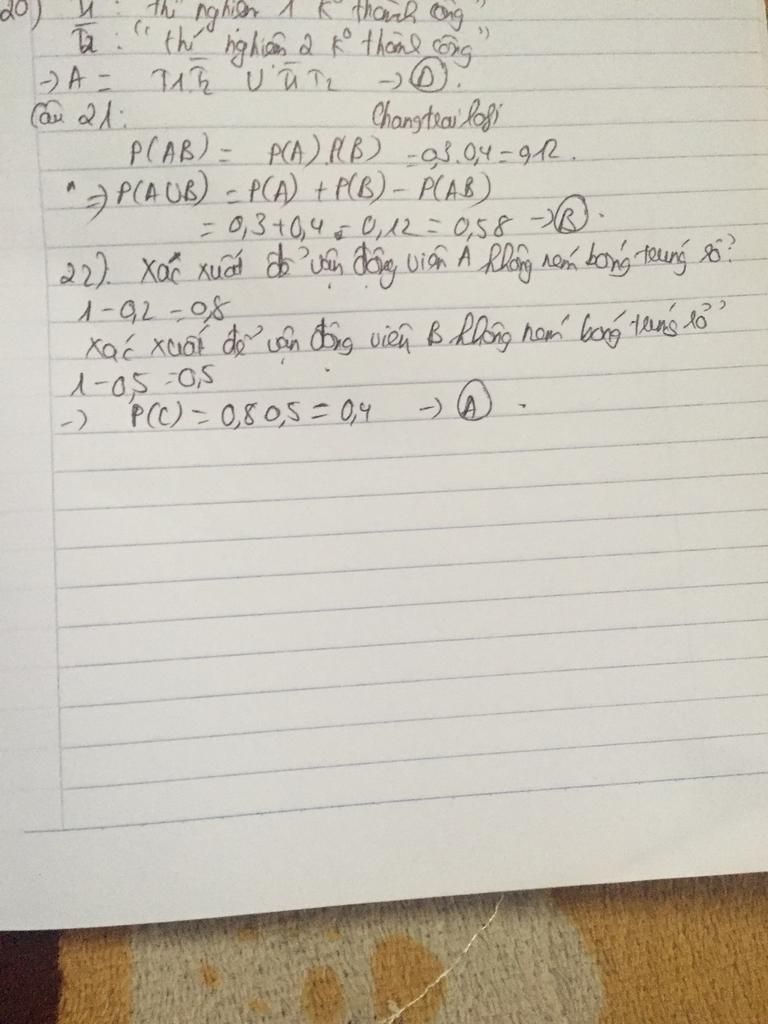 20) T̄1 : "thí nghiệm 1 k° thành công"
T̄2 : "thí nghiệm 2 k° thành công"
→ A = T1T̄2 ∪ T̄1T2 → Ⓓ.
Câu 21:
P(AB) = P(A) P(B) = 0,3.0,4 = 0,12.
⇒ P(A∪B) = P(A) + P(B) - P(AB)
= 0,3 + 0,4 - 0,12 = 0,58 → Ⓑ.
22). Xác xuất để vận động viên A không ném bóng trúng rổ:
1 - 0,2 = 0,8
xác xuất để vận động viên B không ném bóng trúng rổ
1 - 0,5 = 0,5
→ P(C) = 0,8 0,5 = 0,4 → Ⓐ.